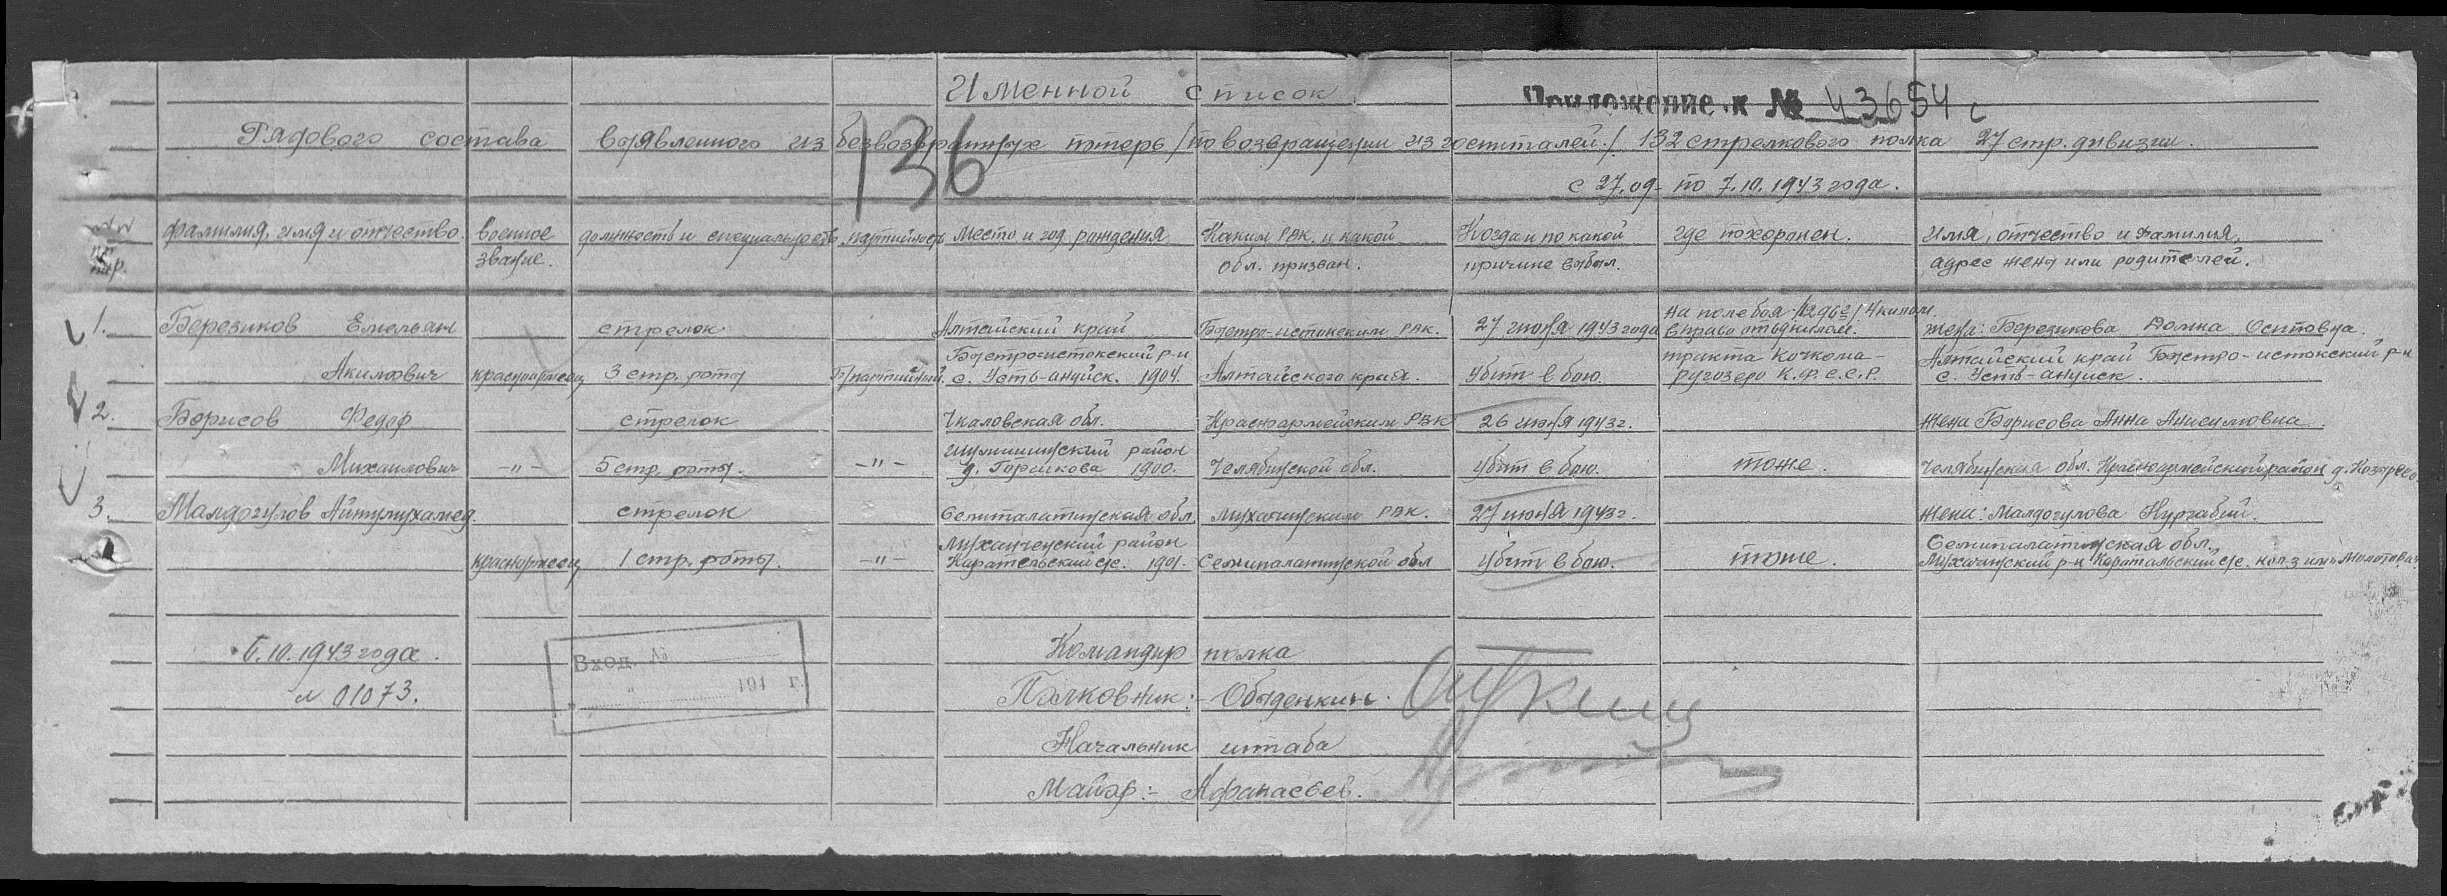 Именной список
Приложение к № 43654 с
136
Рядового состава выявленного из безвозвратных потерь /по возвращении из госпиталей/. 132 стрелкового полка 27 стр. дивизии.
с 27.09 по 7.10.1943 года.
Фамилия, имя и отчество. Военное должность и специальность партийность Место и год рождения Каким РВК. и какой Когда и по какой где похоронен. имя, отчество и фамилия,
пор. звание. обл. призван. причине выбыл. адрес жены или родителей.
на поле боя
1. Березиков Емельян стрелок Алтайский край Быстро-истокским РВК. 27 июня 1943 года вправо от жена: Березикова Домна Осиповна.
Быстро-истокский р-н тракта Кочкома- Алтайский край Быстро-истокский р-н
Акимович красноармеец 3 стр. роты Б/партийный. с. Усть-ануйск. 1904. Алтайского края. Убит в бою. ругозеро К.Ф.С.С.Р. с. Усть-ануйск.
2. Борисов Федор стрелок Чкаловская обл. Красноармейским РВК 26 июня 1943 г. жена Борисова Анна Анисимовна
район
Михайлович -"- 5 стр. роты. -"- д. 1900. Челябинской обл. убит в бою. тоже. Челябинская обл. Красноармейский район д.
3. Малдогулов стрелок Семипалатинская обл. РВК. 27 июня 1943 г. жена: Малдогулова
район Семипалатинская обл.
красноармеец 1 стр. роты. -"- с/с. 1901. Семипалатинской обл убит в бою. тоже. р-н Каратальский с/с.
6.10.1943 года. Командир полка
Вход. №
№ 01073. Полковник:- Обыденкин.
" 194 г.
Начальник штаба
Майор:- Афанасьев.